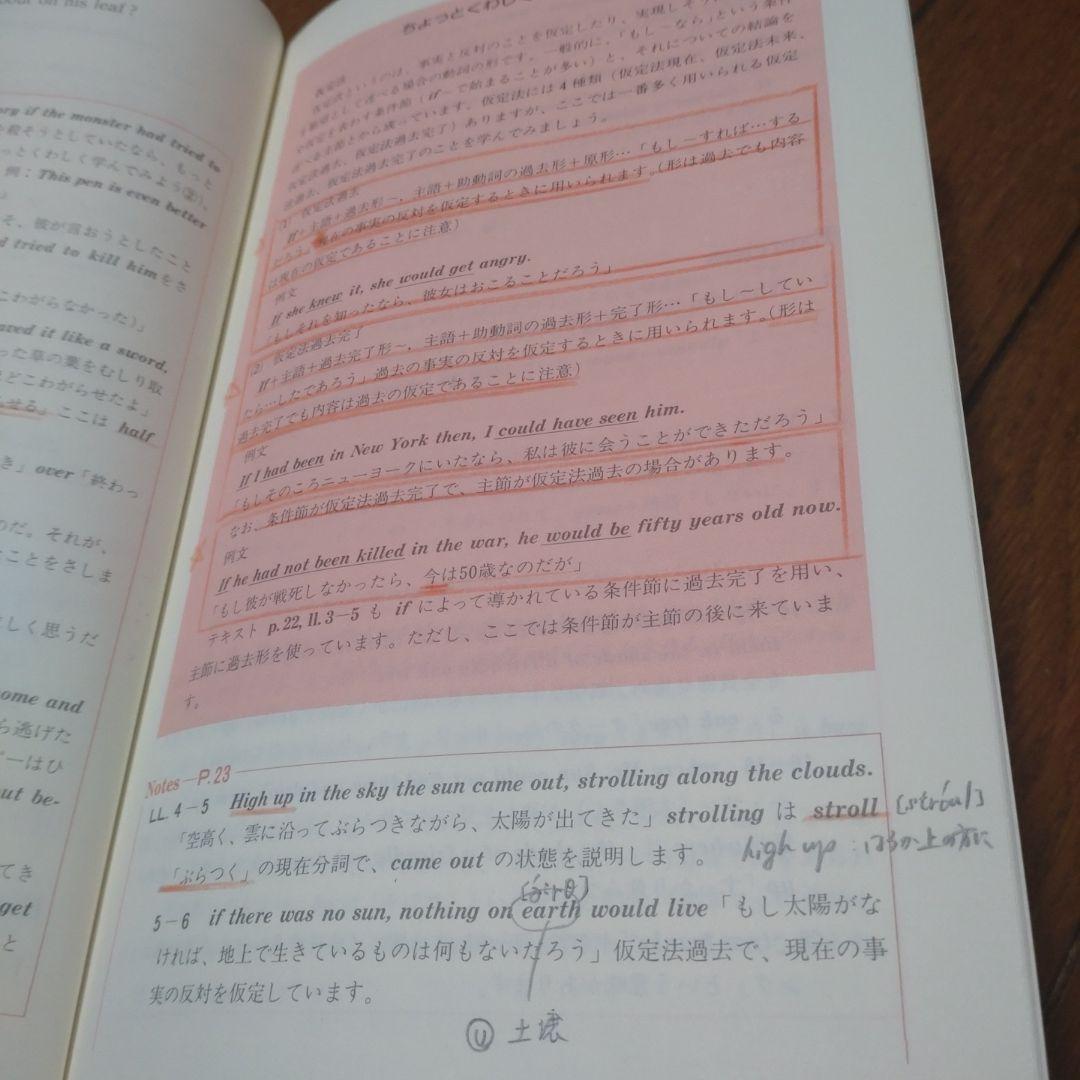 out on his leaf?
ory if the monster had tried to
を殺そうとしていたなら、もっと
っとくわしく学んでみよう②)。
例：This pen is even better
そ、彼が言おうとしたこと
d tried to kill him をさ
こわがらなかった)」
aved it like a sword.
った草の葉をむしり取
ほどこわがらせたよ」
せる」ここは half
き」over「終わっ
のだ。それが、
たことをさしま
しく思うだ
ome and
ら逃げた
ーはひ
ut be-
てき
get
と
ちょっとくわしく
仮定法というのは、事実と反対のことを仮定したり、実現しそう
して述べる場合の動詞の形です。一般的に、「もし～なら」という条件
を表わす条件節（if～で始まることが多い）と、それについての結論を
べる主節とから成っています。仮定法には4種類（仮定法現在、仮定法未来、
仮定法過去、仮定法過去完了）ありますが、ここでは一番多く用いられる仮定
法過去、仮定法過去完了のことを学んでみましょう。
(1) 仮定法過去
If+主語+過去形～, 主語+助動詞の過去形+原形…「もし～すれば…する
だろう」現在の事実の反対を仮定するときに用いられます。（形は過去でも内容
は現在の仮定であることに注意）
例文
If she knew it, she would get angry.
「もしそれを知ったなら、彼女はおこることだろう」
(2) 仮定法過去完了
If+主語+過去完了形～, 主語+助動詞の過去形+完了形…「もし～してい
たら…したであろう」過去の事実の反対を仮定するときに用いられます。（形は
過去完了でも内容は過去の仮定であることに注意）
例文
If I had been in New York then, I could have seen him.
「もしそのころニューヨークにいたなら、私は彼に会うことができただろう」
なお、条件節が仮定法過去完了で、主節が仮定法過去の場合があります。
例文
If he had not been killed in the war, he would be fifty years old now.
「もし彼が戦死しなかったら、今は50歳なのだが」
テキスト p.22, ll.3－5 も if によって導かれている条件節に過去完了を用い、
主節に過去形を使っています。ただし、ここでは条件節が主節の後に来ていま
す。
Notes－P.23
LL. 4－5 High up in the sky the sun came out, strolling along the clouds.
「空高く、雲に沿ってぶらつきながら、太陽が出てきた」strolling は stroll
「ぶらつく」の現在分詞で、came out の状態を説明します。
high up : はるか上の方に
5－6 if there was no sun, nothing on earth would live「もし太陽がな
ければ、地上で生きているものは何もないだろう」仮定法過去で、現在の事
実の反対を仮定しています。
Ⓤ 土壌